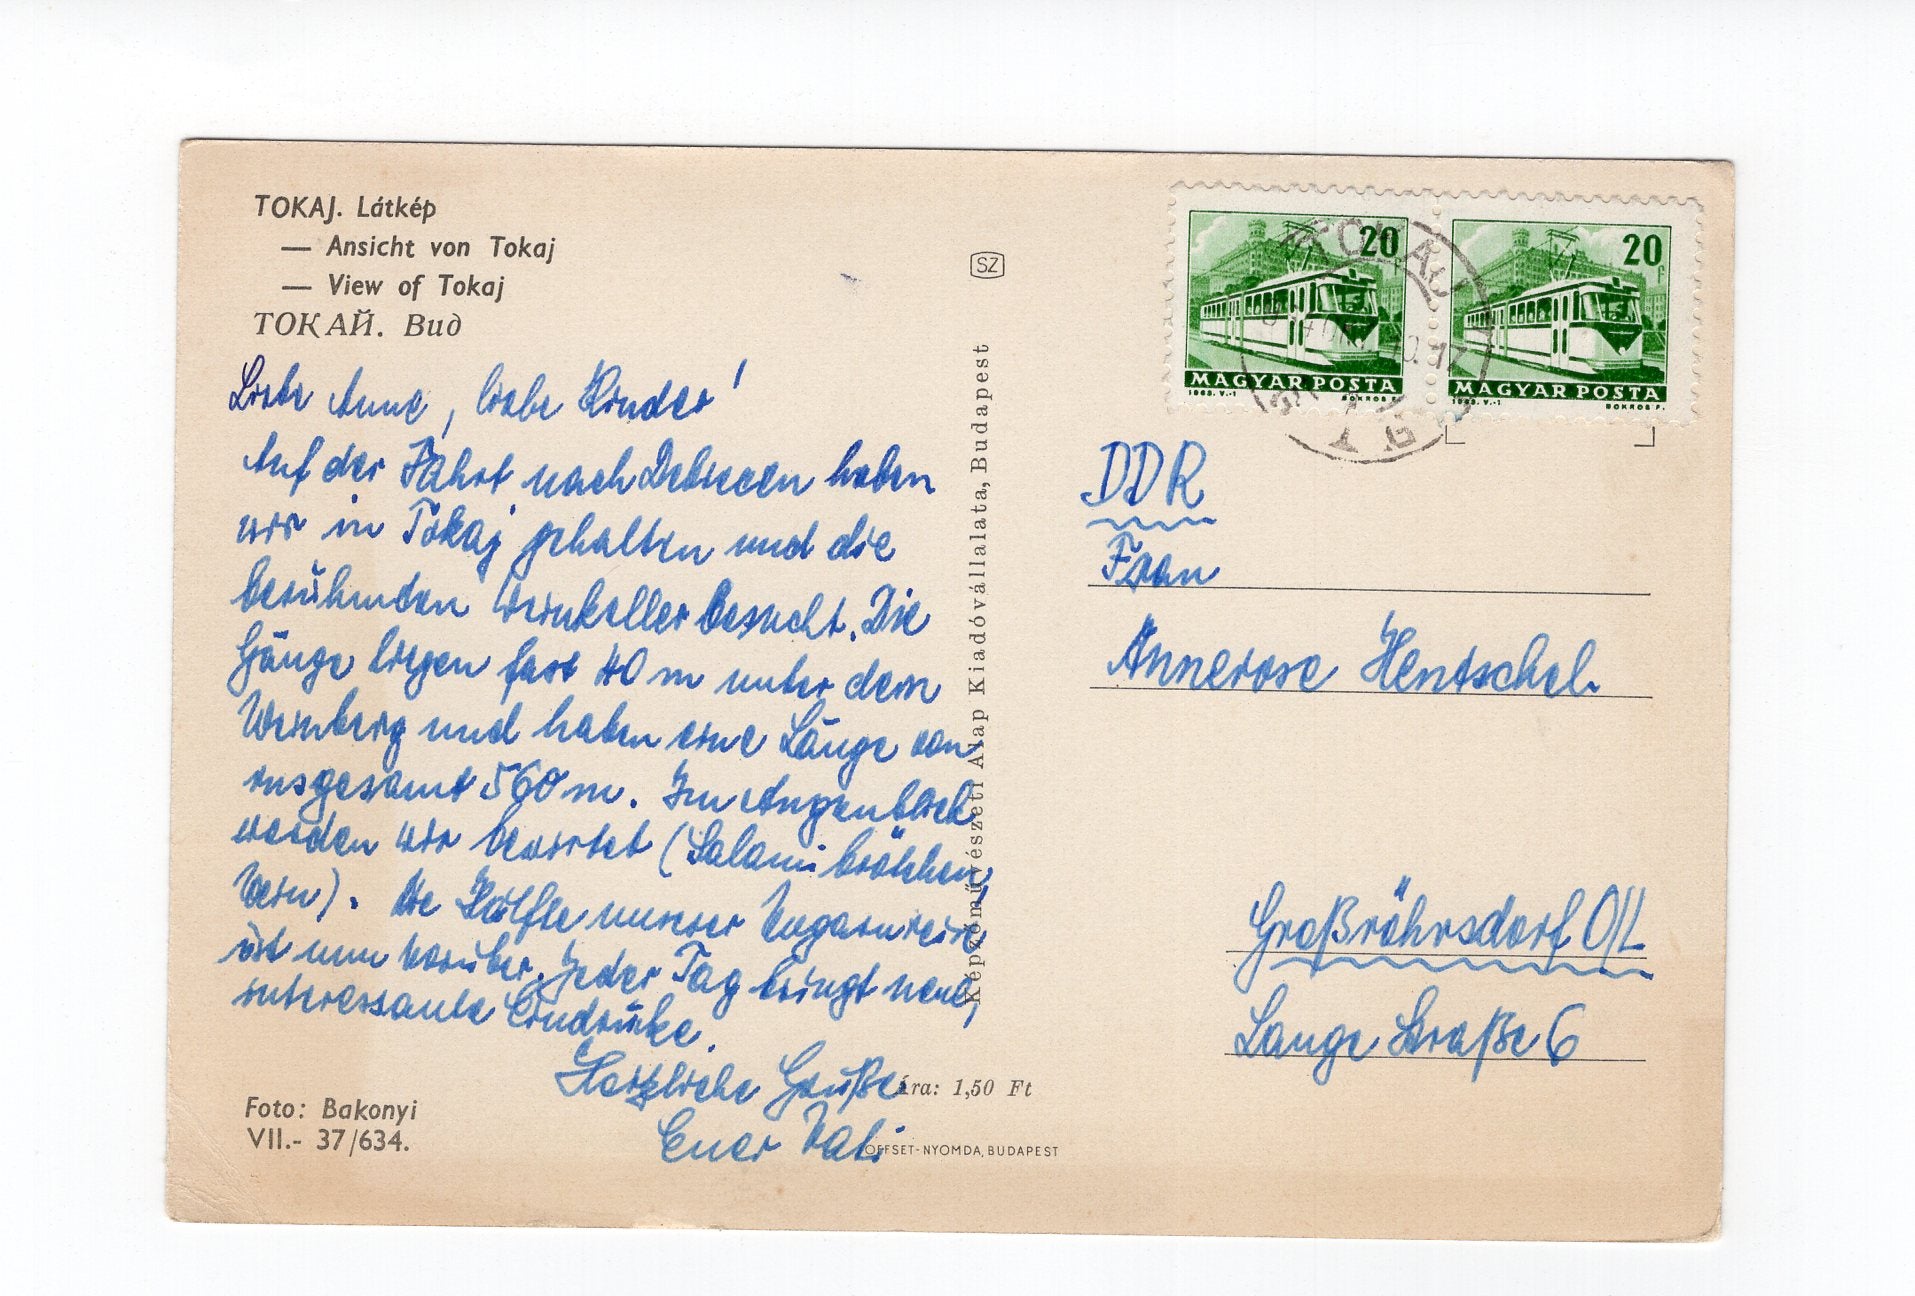 TOKAJ. Látkép
— Ansicht von Tokaj
— View of Tokaj
ТОКАЙ. Вид
Liebe Anne, liebe Kinder!
Auf der Fahrt nach Debrecen haben
wir in Tokaj gehalten und die
berühmten Weinkeller besucht. Die
Gänge liegen fast 40 m unter dem
Weinberg und haben eine Länge von
insgesamt 560 m. Im Augenblick
werden wir bewirtet (Salamibrötchen,
Wein). Die Hälfte unserer Ungarnreise
ist nun vorüber. Jeder Tag bringt neue,
interessante Eindrücke.
Herzliche Grüße
Euer Vati
Foto: Bakonyi
VII.- 37/634.
Ára: 1,50 Ft
OFFSET-NYOMDA, BUDAPEST
SZ
Képzőművészeti Alap Kiadóvállalata, Budapest
20f
MAGYAR POSTA
1963. V.-1 BOKROS F.
20f
MAGYAR POSTA
1963. V.-1 BOKROS F.
TOKAJ
DDR
Frau
Annerose Hentschel
Großröhrsdorf O/L
Lange Straße 6